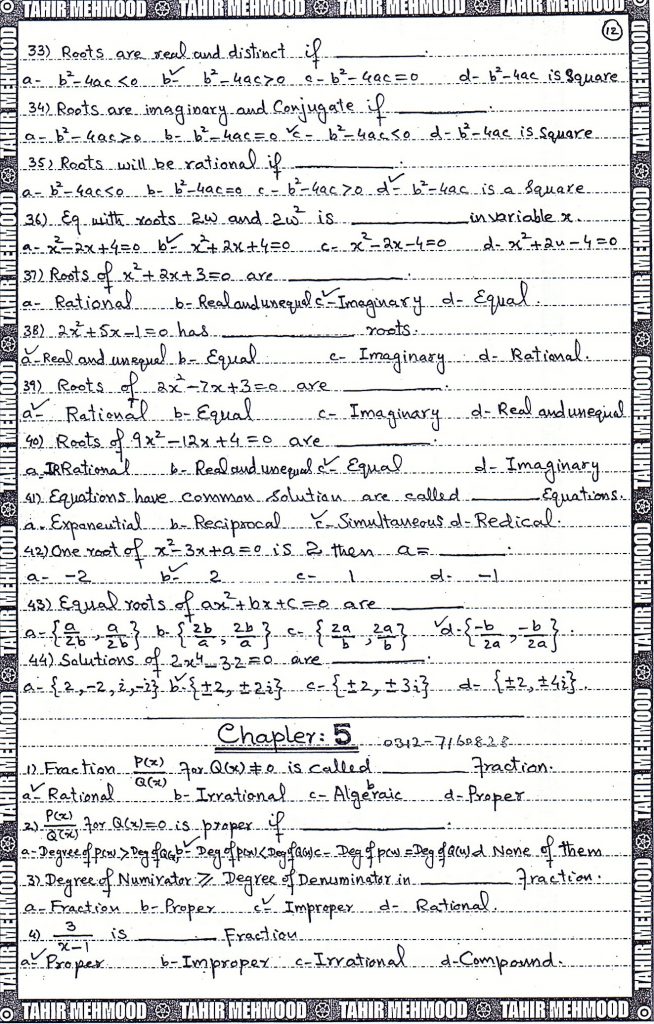 TAHIR MEHMOOD TAHIR MEHMOOD TAHIR MEHMOOD TAHIR MEHMOOD
12
33) Roots are real and distinct if ________.
a- b²-4ac<0 b✓- b²-4ac>0 c- b²-4ac=0 d- b²-4ac is Square
34) Roots are imaginary and Conjugate if ________.
a- b²-4ac>0 b- b²-4ac=0 ✓c- b²-4ac<0 d- b²-4ac is Square
35) Roots will be rational if ________.
a- b²-4ac<0 b- b²-4ac=0 c- b²-4ac>0 d✓- b²-4ac is a Square
36) Eq with roots 2ω and 2ω² is ________ in variable x.
a- x²-2x+4=0 b✓- x²+2x+4=0 c- x²-2x-4=0 d- x²+2u-4=0
37) Roots of x²+2x+3=0 are ________.
a- Rational b- Real and unequal c✓- Imaginary d- Equal.
38) 2x²+5x-1=0 has ________ roots.
a✓- Real and unequal b- Equal c- Imaginary d- Rational.
39) Roots of 2x²-7x+3=0 are ________.
a✓- Rational b- Equal c- Imaginary d- Real and unequal
40) Roots of 9x²-12x+4=0 are ________.
a- IRRational b- Real and unequal c✓- Equal d- Imaginary
41) Equations have common Solution are called ________ Equations.
a. Expanential b- Reciprocal ✓c- Simultaneous d- Redical.
42) One root of x²-3x+a=0 is 2 then a= ________.
a- -2 b✓- 2 c- 1 d- -1
43) Equal roots of ax²+bx+c=0 are ________
a- {a/2b, a/2b} b- {2b/a, 2b/a} c- {2a/b, 2a/b} ✓d- {-b/2a, -b/2a}.
44) Solutions of 2x⁴-32=0 are ________.
a- {2,-2,i,-i} b✓- {±2, ±2i} c- {±2, ±3i} d- {±2, ±4i}.
Chapler: 5 0312-7160828
1) Fraction P(x)/Q(x) For Q(x)≠0 is called ________ Fraction.
a✓- Rational b- Irrational c- Algebraic d- Proper
2) P(x)/Q(x) For Q(x)=0 is proper if ________.
a- Degree of P(x) > Deg of Q(x) b✓- Deg of P(x) < Deg of Q(x) c- Deg of P(x) = Deg of Q(x) d None of them
3) Degree of Numirator ⩾ Degree of Denuminator in ________ Fraction.
a- Fraction b- Proper c✓- Improper d- Rational.
4) 3/x-1 is ________ Fraction
a✓- Proper b- Improper c- Irrational d- Compound.
TAHIR MEHMOOD TAHIR MEHMOOD TAHIR MEHMOOD TAHIR MEHMOOD